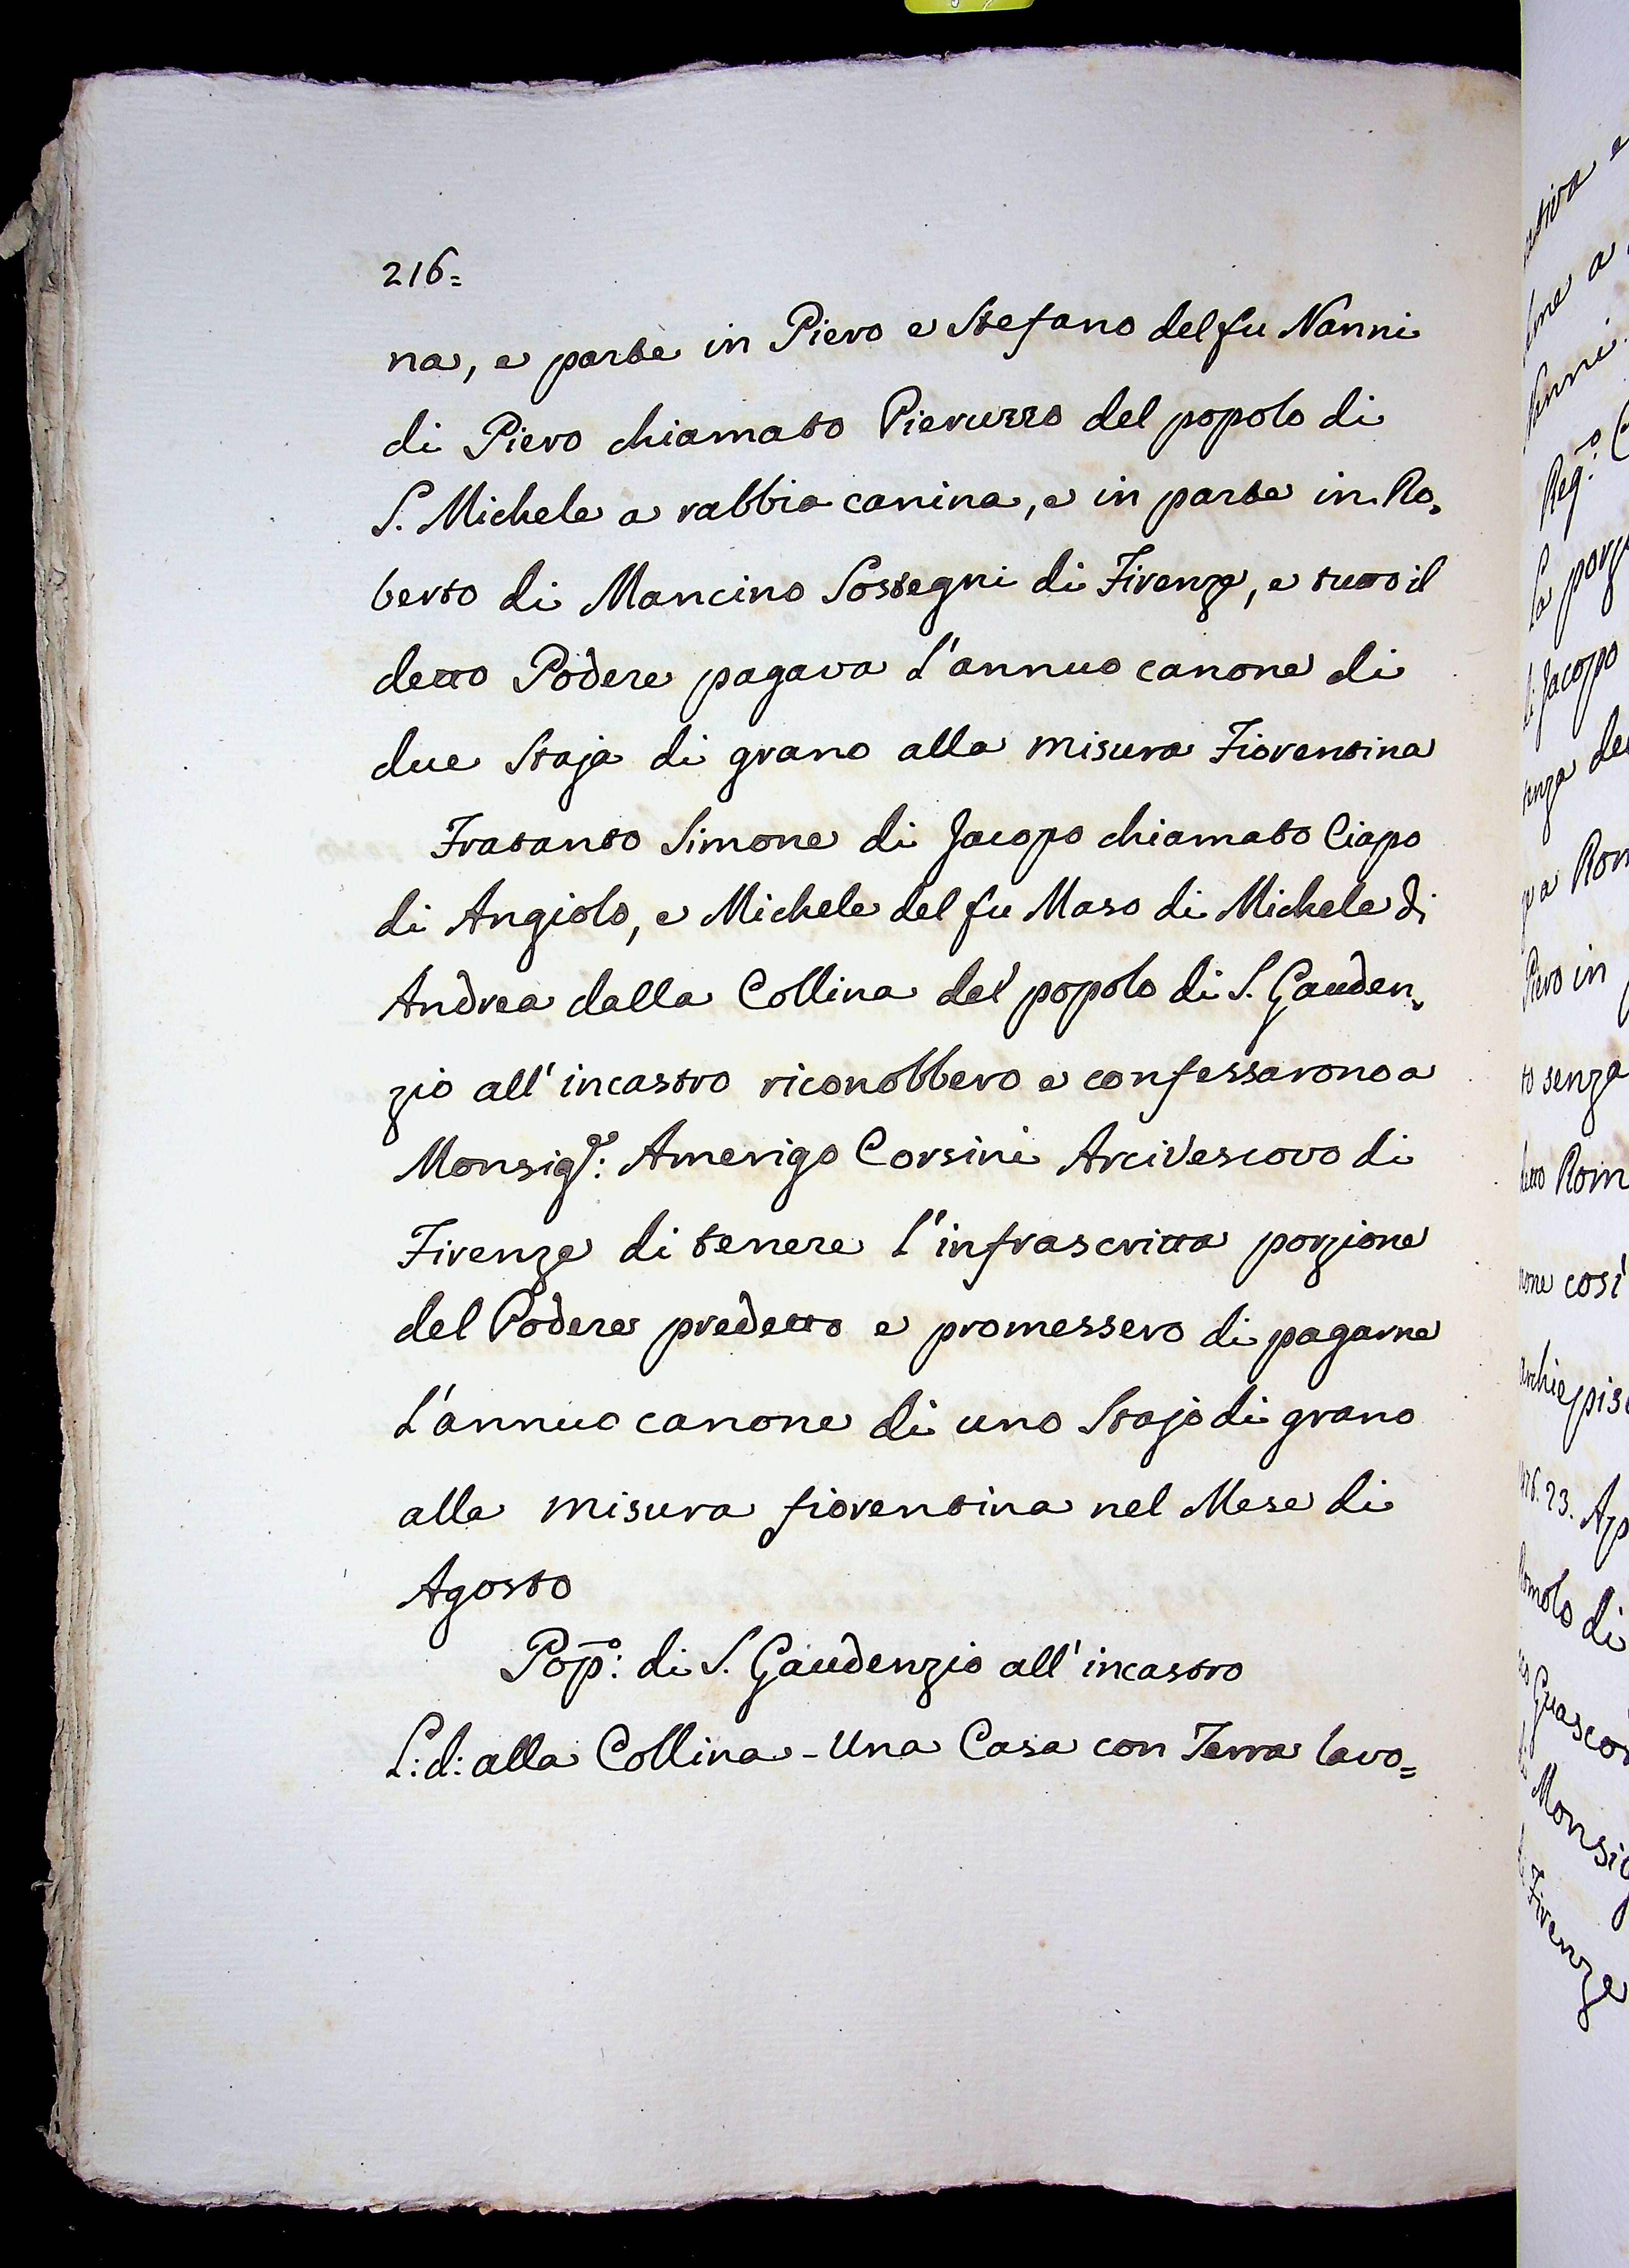 216=
na, e parte in Piero e Stefano del fu Nanni
di Piero chiamato Pieruzzo del popolo di
S. Michele a rabbia canina, e in parte in Ro=
berto di Mancino Sostegni di Firenze, e tutto il
detto Podere pagava l'annuo canone di
due Staja di grano alla misura Fiorentina
Fratanto Simone di Jacopo chiamato Ciapo
di Angiolo, e Michele del fu Maso di Michele di
Andrea dalla Collina del popolo di S. Gauden=
zio all'incastro riconobbero e confessarono a
Monsigr: Amerigo Corsini Arcivescovo di
Firenze di tenere l'infrascritta porzione
del Podere predetto e promessero di pagarne
l'annuo canone di uno Stajo di grano
alla misura fiorentina nel Mese di
Agosto
Popo: di S. Gaudenzio all'incastro
L: d: alla Collina - Una Casa con Terra lavo=
Nanni.
Reg.o
La porz
di Jacopo
enza de
Rom
Piero in
to senza
detto Rom
none così
archiepisc
23. Ap
Romolo di
Guascon
Monsig
di Firenze